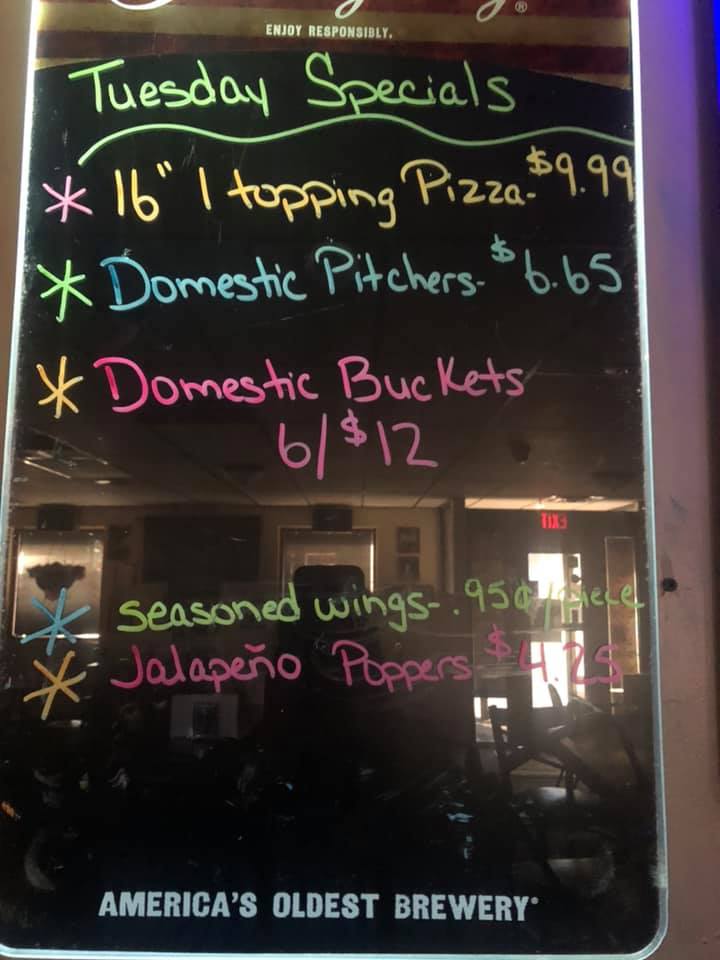 ®
ENJOY RESPONSIBLY.
Tuesday Specials
* 16" 1 topping Pizza- $9.99
* Domestic Pitchers- $6.65
* Domestic Buckets
6/$12
EXIT
* seasoned wings- .95¢/piece
* Jalapeño Poppers $4.25
AMERICA'S OLDEST BREWERY®